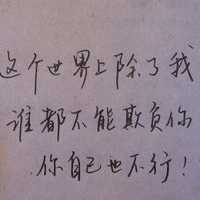 这个世界上除了我
谁都不能欺负你
你自己也不行！